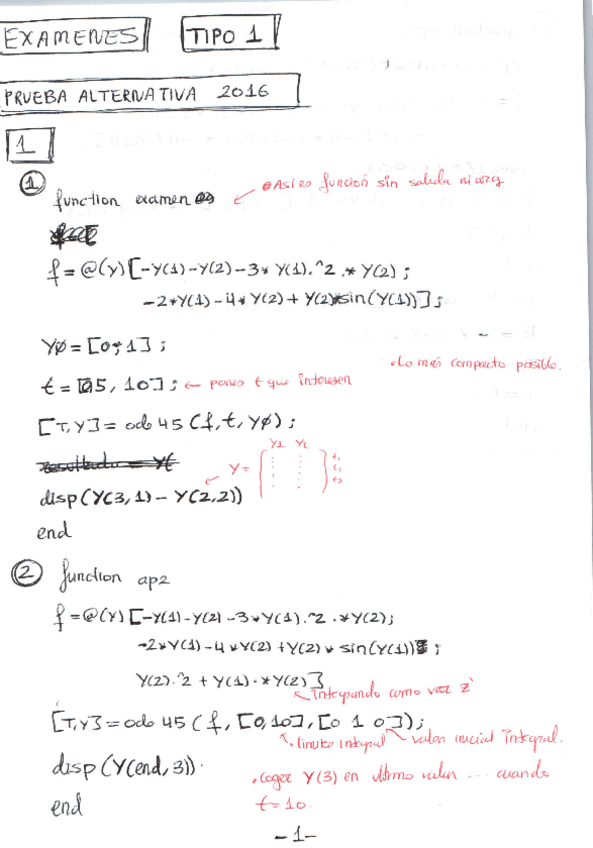 EXAMENES TIPO 1
PRUEBA ALTERNATIVA 2016
1
① function examen ← Así es función sin salida ni arg
f = @(y) [-Y(1)-Y(2)-3* Y(1).^2 .* Y(2) ;
-2*Y(1)-4*Y(2)+ Y(2)*sin(Y(1))] ;
YØ = [0;1] ;
• Lo más compacto posible.
t = [05, 10] ; ← pones t que interesen
[T,Y] = ode 45 (f, t, YØ) ;
Y1 Y2
Y = t1 t2 t3
disp(Y(3,1) - Y(2,2))
end
② function ap2
f = @(Y) [-Y(1)-Y(2)-3*Y(1).^2 .*Y(2);
-2*Y(1)-4*Y(2)+Y(2)* sin(Y(1)) ;
Y(2).^2 + Y(1).*Y(2)]
integrando como var z'
[T,Y] = ode 45 ( f, [0,10], [0 1 0]);
limite integral valor inicial integral.
disp (Y(end,3))
• Coger Y(3) en ultimo valor ... cuando
end
t=10.
-1-